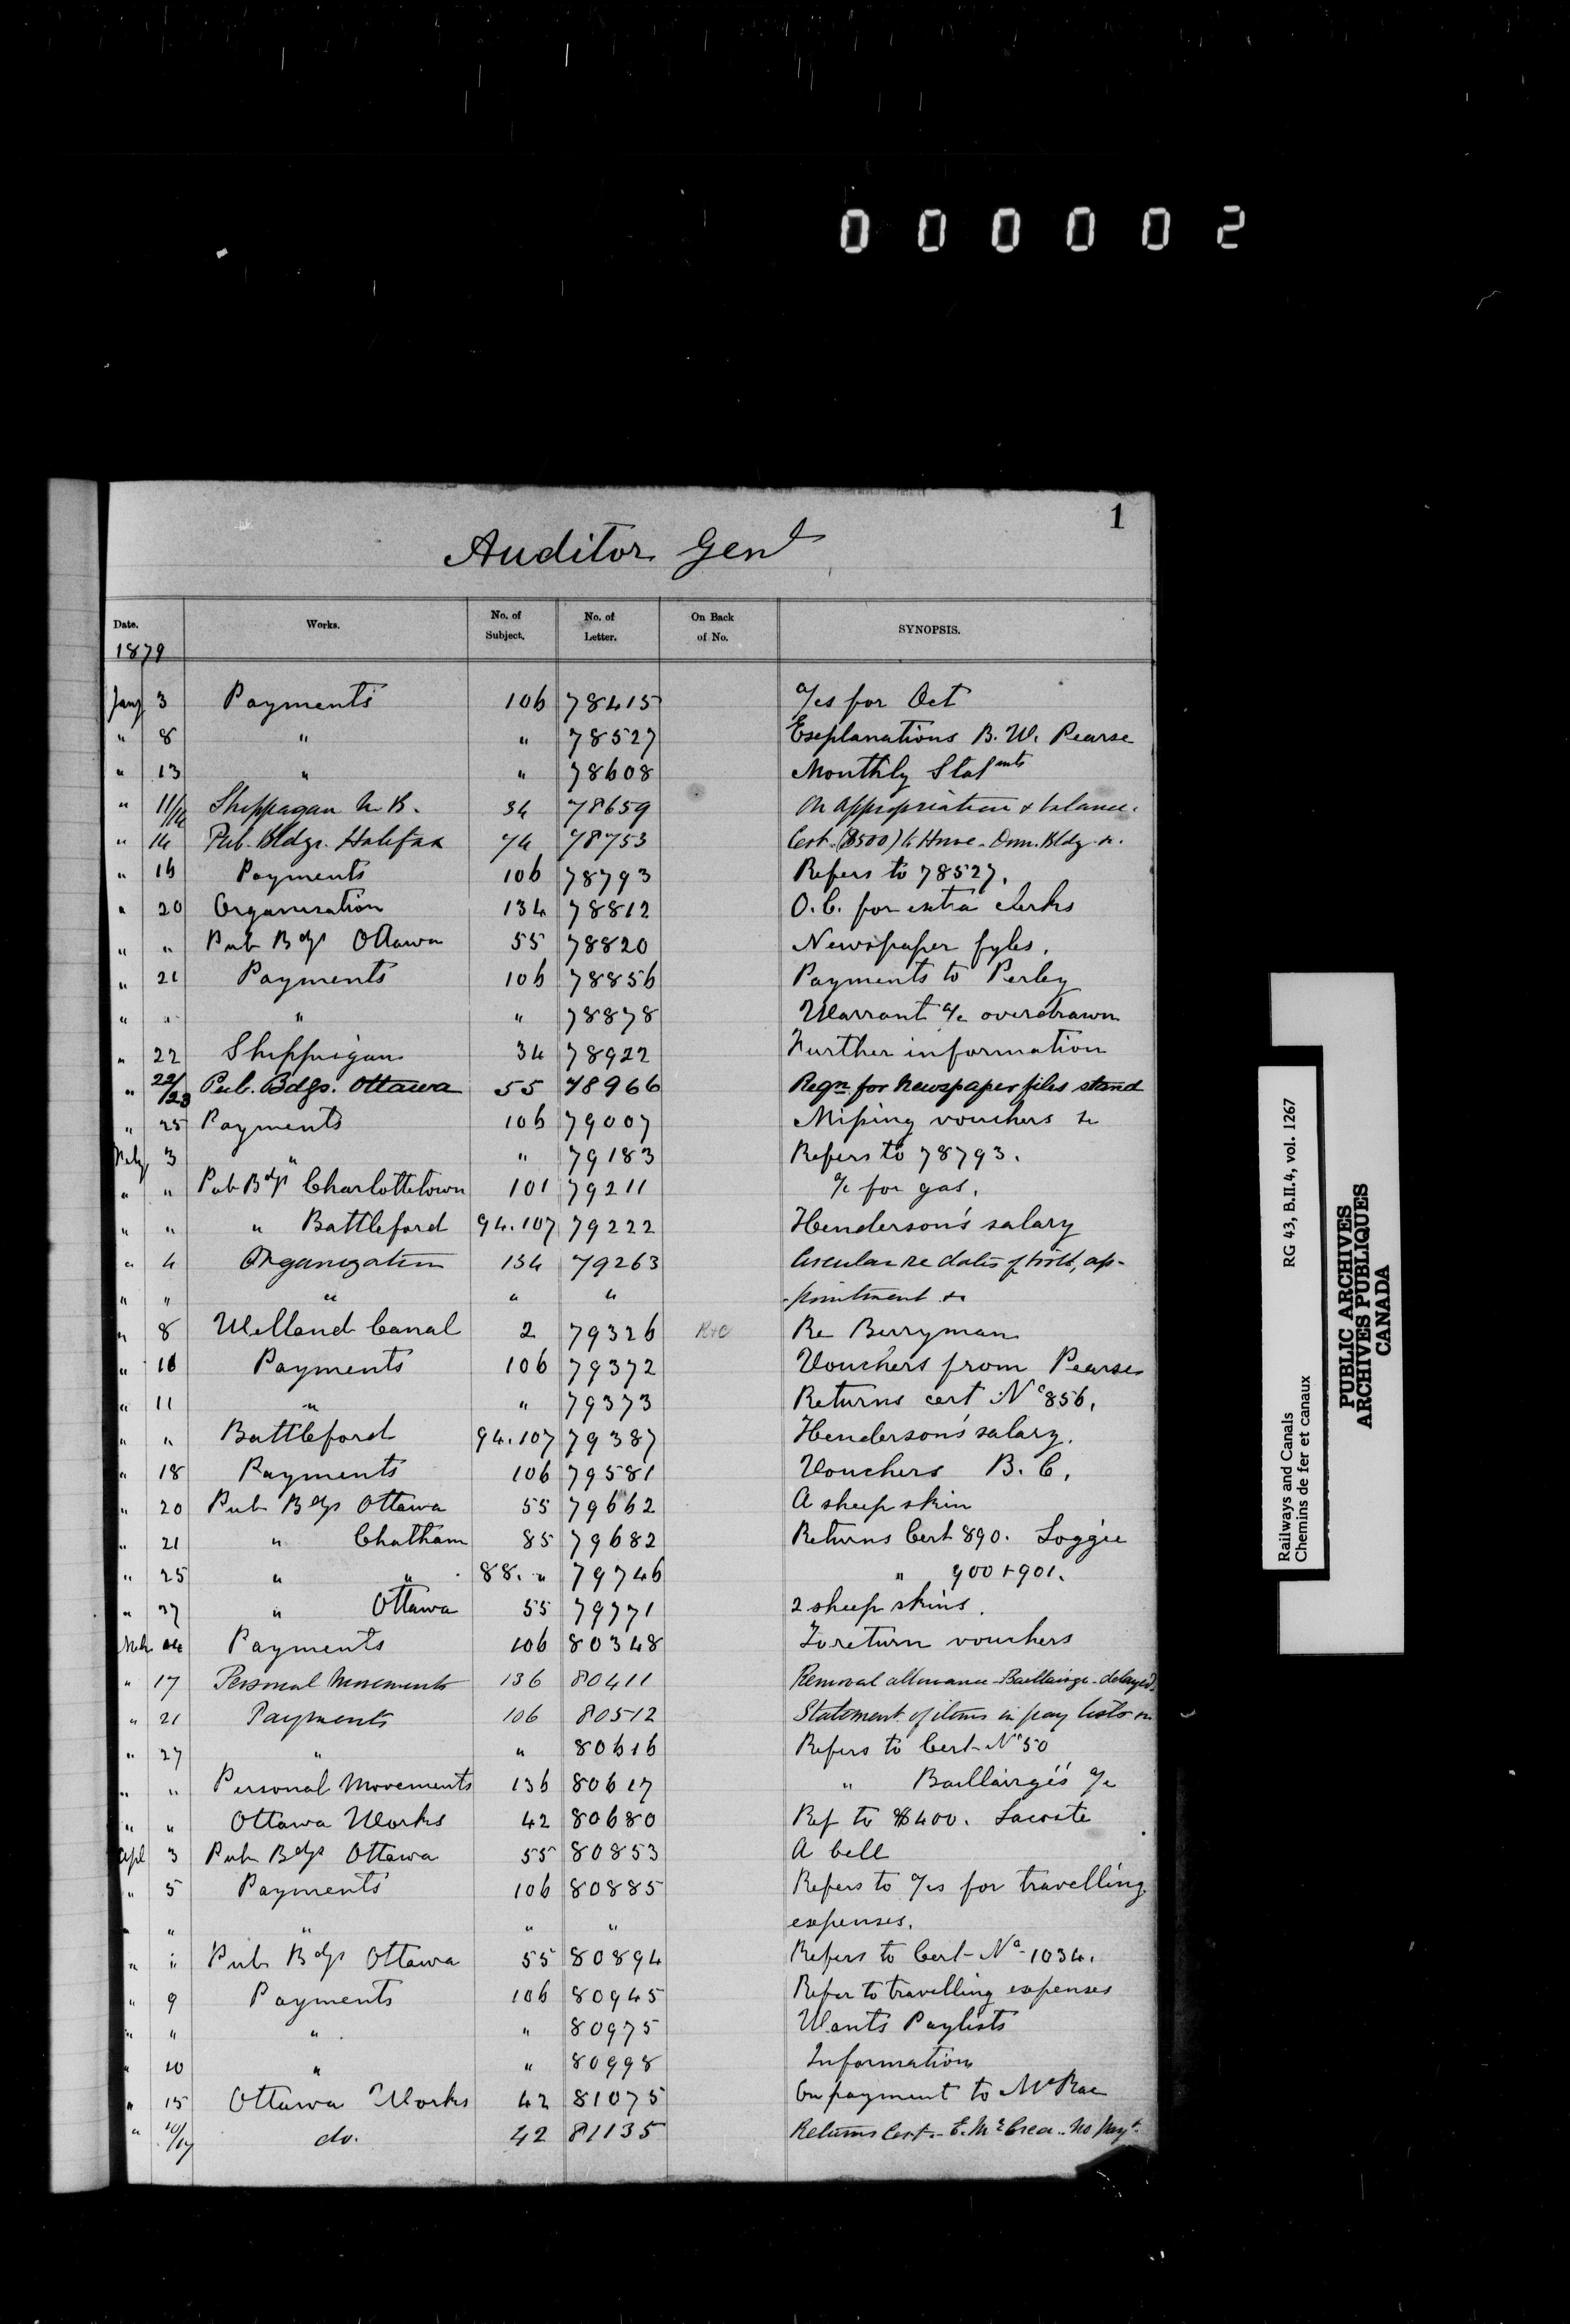 000002
1
Auditor Genl
Date. Works. No. of Subject. No. of Letter. On Back of No. SYNOPSIS.
1879
Jany 3 Payments 106 78415 a/cs for Oct
" 8 " " 78527 Explanations B. W. Pearse
" 13 " " 78608 Monthly Statmts
" 11/14 Shippagan N.B. 34 78659 On appropriation & balance.
" 14 Pub. Bldgs. Halifax 74 78753 Cert. ($500) to Howe - Dom. Bldg
" 16 Payments 106 78793 Refers to 78527.
" 20 Organization 134 78812 O.C. for extra clerks
" " Pub Bdgs Ottawa 55 78820 Newspaper fyles.
" 21 Payments 106 78856 Payments to Perley
" " " " 78878 Warrant a/c overdrawn
" 22 Shippigan 34 78922 Further information
" 22/23 Pub. Bdgs. Ottawa 55 78966 Reqn for Newspaper files stand
" 25 Payments 106 79007 Missing vouchers &c
Feby 3 " " 79183 Refers to 78793.
" " Pub Bdgs Charlottetown 101 79211 a/c for gas.
" " " Battleford 94.107 79222 Henderson's salary
" 4 Organization 134 79263 Circular re dates of birth, ap-
" " " " " -pointment &c
" 8 Welland Canal 2 79326 R&C Re Berryman
" 10 Payments 106 79372 Vouchers from Pearse
" 11 " " 79373 Returns cert No 856.
" " Battleford 94.107 79387 Henderson's salary.
" 18 Payments 106 79581 Vouchers B.C.
" 20 Pub Bdgs Ottawa 55 79662 A sheep skin
" 21 " Chatham 85 79682 Returns Cert 890. Loggie
" 25 " " 88. " 79746 " 900 + 901.
" 27 " Ottawa 55 79771 2 sheep skins.
Mch Payments 106 80348 To return vouchers
" 17 Personal Movements 136 80411 Removal allowance - Baillairge - delayed
" 21 Payments 106 80512 Statement of items in pay lists
" 27 " " 80616 Refers to Cert No 50
" " Personal Movements 136 80617 " Baillairgé's a/c
" " Ottawa Works 42 80680 Ref to $400. Lacoste
Apl 3 Pub Bdgs Ottawa 55 80853 A bell
" 5 Payments 106 80885 Refers to a/cs for travelling
" " " " " expenses.
" " Pub Bdgs Ottawa 55 80894 Refers to Cert No 1034.
" 9 Payments 106 80945 Refer to travelling expenses
" " " " 80975 Wants Paylists
" 10 " " 80998 Information
" 15 Ottawa Works 42 81075 On payment to McRae
" 10/17 do. 42 81135 Returns Cert. - E. McCrea - No payt
Railways and Canals RG 43, B.II.4, vol. 1267
Chemins de fer et canaux
PUBLIC ARCHIVES
ARCHIVES PUBLIQUES
CANADA